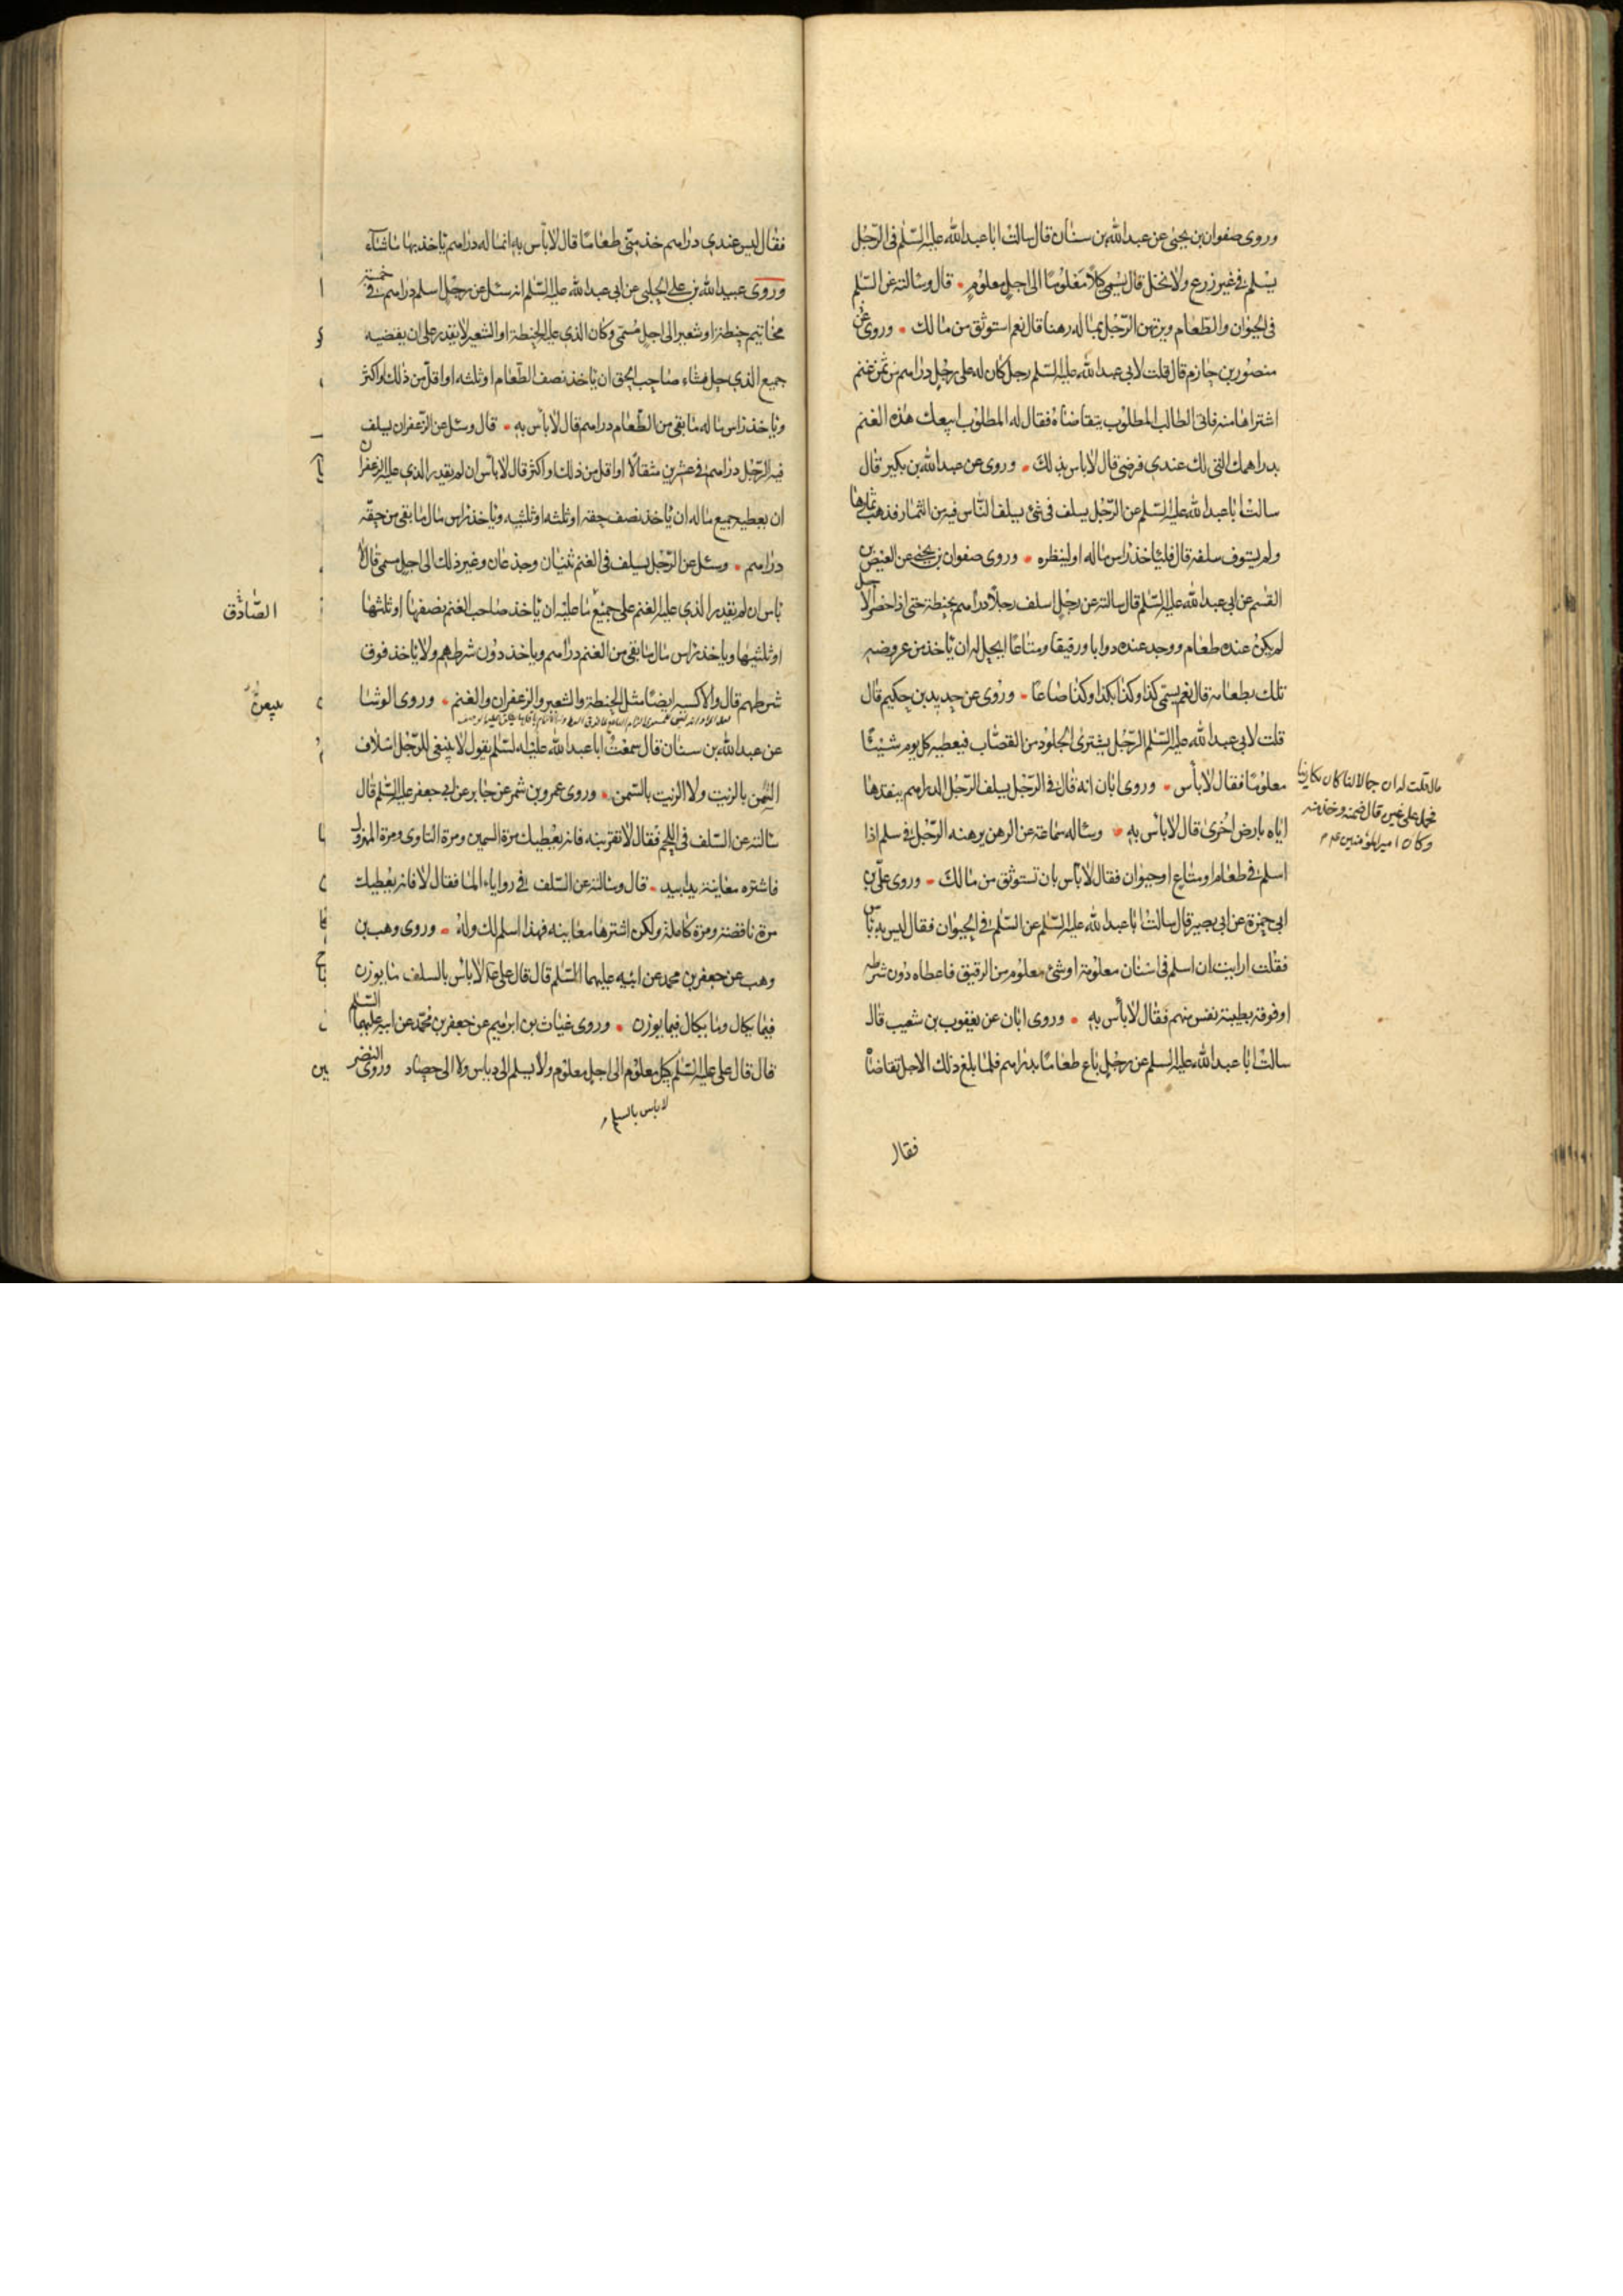 وروى صفوان بن يحيى عن عبدالله بن سنان قال سالت ابا عبدالله عليه السّلم فى الرّجل
يسلم فى غير زرع ولا نخل قال يسمى كلاً معلومًا الى اجل معلوم • قال وسالته عن السّلم
فى الحيوان والطّعام ويرتهن الرّجل بماله رهنا قال نعم استوثق من مالك • وروى عن
منصور بن حازم قال قلت لابى عبدالله عليه السّلم رجل كان له على رجل دراهم من ثمن غنم
اشتراها منه فاتى الطالب المطلوب يتقاضاه فقال له المطلوب ابيعك هذه الغنم
بدراهمك التى لك عندى فرضى قال لاباس بذلك • وروى عن عبدالله بن بكير قال
سالت ابا عبدالله عليه السّلم عن الرّجل يسلف فى شئ يسلف النّاس فيه من الثمار فذهب ثمارها
ولم يستوف سلفه قال فليأخذ راس ماله او لينظره • وروى صفوان بن يحيى عن العيص بن
القسم عن ابى عبدالله عليه السّلم قال سالته عن رجل اسلف رجلاً دراهم بحنطة حتى اذا حضر الاجل
لم يكن عنده طعام ووجد عنده دوابا ورقيقا ومتاعًا ايحل له ان ياخذ من عروضه
تلك بطعامه قال نعم يسمّى كذا وكذا بكذا وكذا صاعًا • وروى عن حديد بن حكيم قال
قلت لابى عبدالله عليه السّلم الرّجل يشترى الجلود من القصّاب فيعطيه كل يوم شيئًا
معلومًا فقال لا بأس • وروى ابان انه قال فى الرّجل يسلف الرّجل الدراهم ينقدها
اياه بارض اخرى قال لاباس به • وساله سماعة عن الرهن يرهنه الرّجل فى سلم اذا
اسلم فى طعام او متاع او حيوان فقال لا بأس بان تستوثق من مالك • وروى علىّ بن
ابى حمزة عن ابى بصير قال سالت ابا عبدالله عليه السّلم عن السّلم فى الحيوان فقال ليس به باس
فقلت ارايت ان اسلم فى اسنان معلومة او شئ معلوم من الرقيق فاعطاه دون شرطه
او فوقه بطيبة نفس منهم فقال لا بأس به • وروى ابان عن يعقوب بن شعيب قال
سالت ابا عبدالله عليه السلم عن رجل باع طعامًا بدراهم فلما بلغ ذلك الاجل تقاضاه
فقال
قلت له ان جمالا لنا كان يكارينا
فحمل على غيره قال ضمنه وخذ منه
وكان امير المؤمنين ع م
فقال ليس عندى دراهم خذ منّى طعامًا قال لا بأس به انما له دراهم ياخذ بها ما شاء
وروى عبيدالله بن على الحلبى عن ابى عبدالله عليه السّلم انه سئل عن رجل اسلم دراهم فى خمسة
مخاتيم حنطة او شعير الى اجل مسمّى وكان الذى عليه الحنطة او الشعير لا يقدر على ان يقضيه
جميع الذى حل فشاء صاحب الحق ان ياخذ نصف الطّعام او ثلثه او اقلّ من ذلك او اكثر
وياخذ راس ماله ما بقى من الطّعام دراهم قال لا بأس به • قال وسئل عن الزّعفران يسلف
فيه الرّجل دراهم فى عشرين مثقالًا او اقل من ذلك او اكثر قال لا بأس ان لم يقدر الذى عليه الزعفران
ان يعطيه جميع ماله ان ياخذ نصف حقه او ثلثه او ثلثيه وياخذ راس مال ما بقى من حقّه
دراهم • وسئل عن الرّجل يسلف فى الغنم ثنيان وجذعان وغير ذلك الى اجل مسمى قال لا
باس ان لم يقدر الذى عليه الغنم على جميع ما عليه ان ياخذ صاحب الغنم نصفها او ثلثها
او ثلثيها وياخذ راس مال ما بقى من الغنم دراهم وياخذ دون شرطهم ولا ياخذ فوق
شرطهم قال والاكسية ايضًا مثل الحنطة والشعير والزعفران والغنم • وروى الوشا
عن عبدالله بن سنان قال سمعت ابا عبدالله عليه السّلم يقول لا ينبغى للرّجل اسلاف
السّمن بالزيت ولا الزيت بالسّمن • وروى عمرو بن شمر عن جابر عن ابى جعفر عليه السّلم قال
سالته عن السّلف فى اللحم فقال لا تقربنه فانه يعطيك مرة السمين ومرة التاوى ومرة المهزول
فاشتره معاينة يدا بيد • قال وسالته عن السّلف فى روايا الماء فقال لا فانه يعطيك
مرة ناقصة ومرة كاملة ولكن اشترها معاينه فهذا اسلم لك وله • وروى وهب بن
وهب عن جعفر بن محمد عن ابيه عليهما السّلم قال قال على ع لا بأس بالسلف ما يوزن
فيما يكال وما يكال فيما يوزن • وروى غياث بن ابرهيم عن جعفر بن محمّد عن ابيه عليهما السّلم
قال قال على عليه السّلم بكيل معلوم الى اجل معلوم ولا يسلم الى دياس ولا الى حصاد وروى النضر
لا باس بالسلم
الصّادق
بين